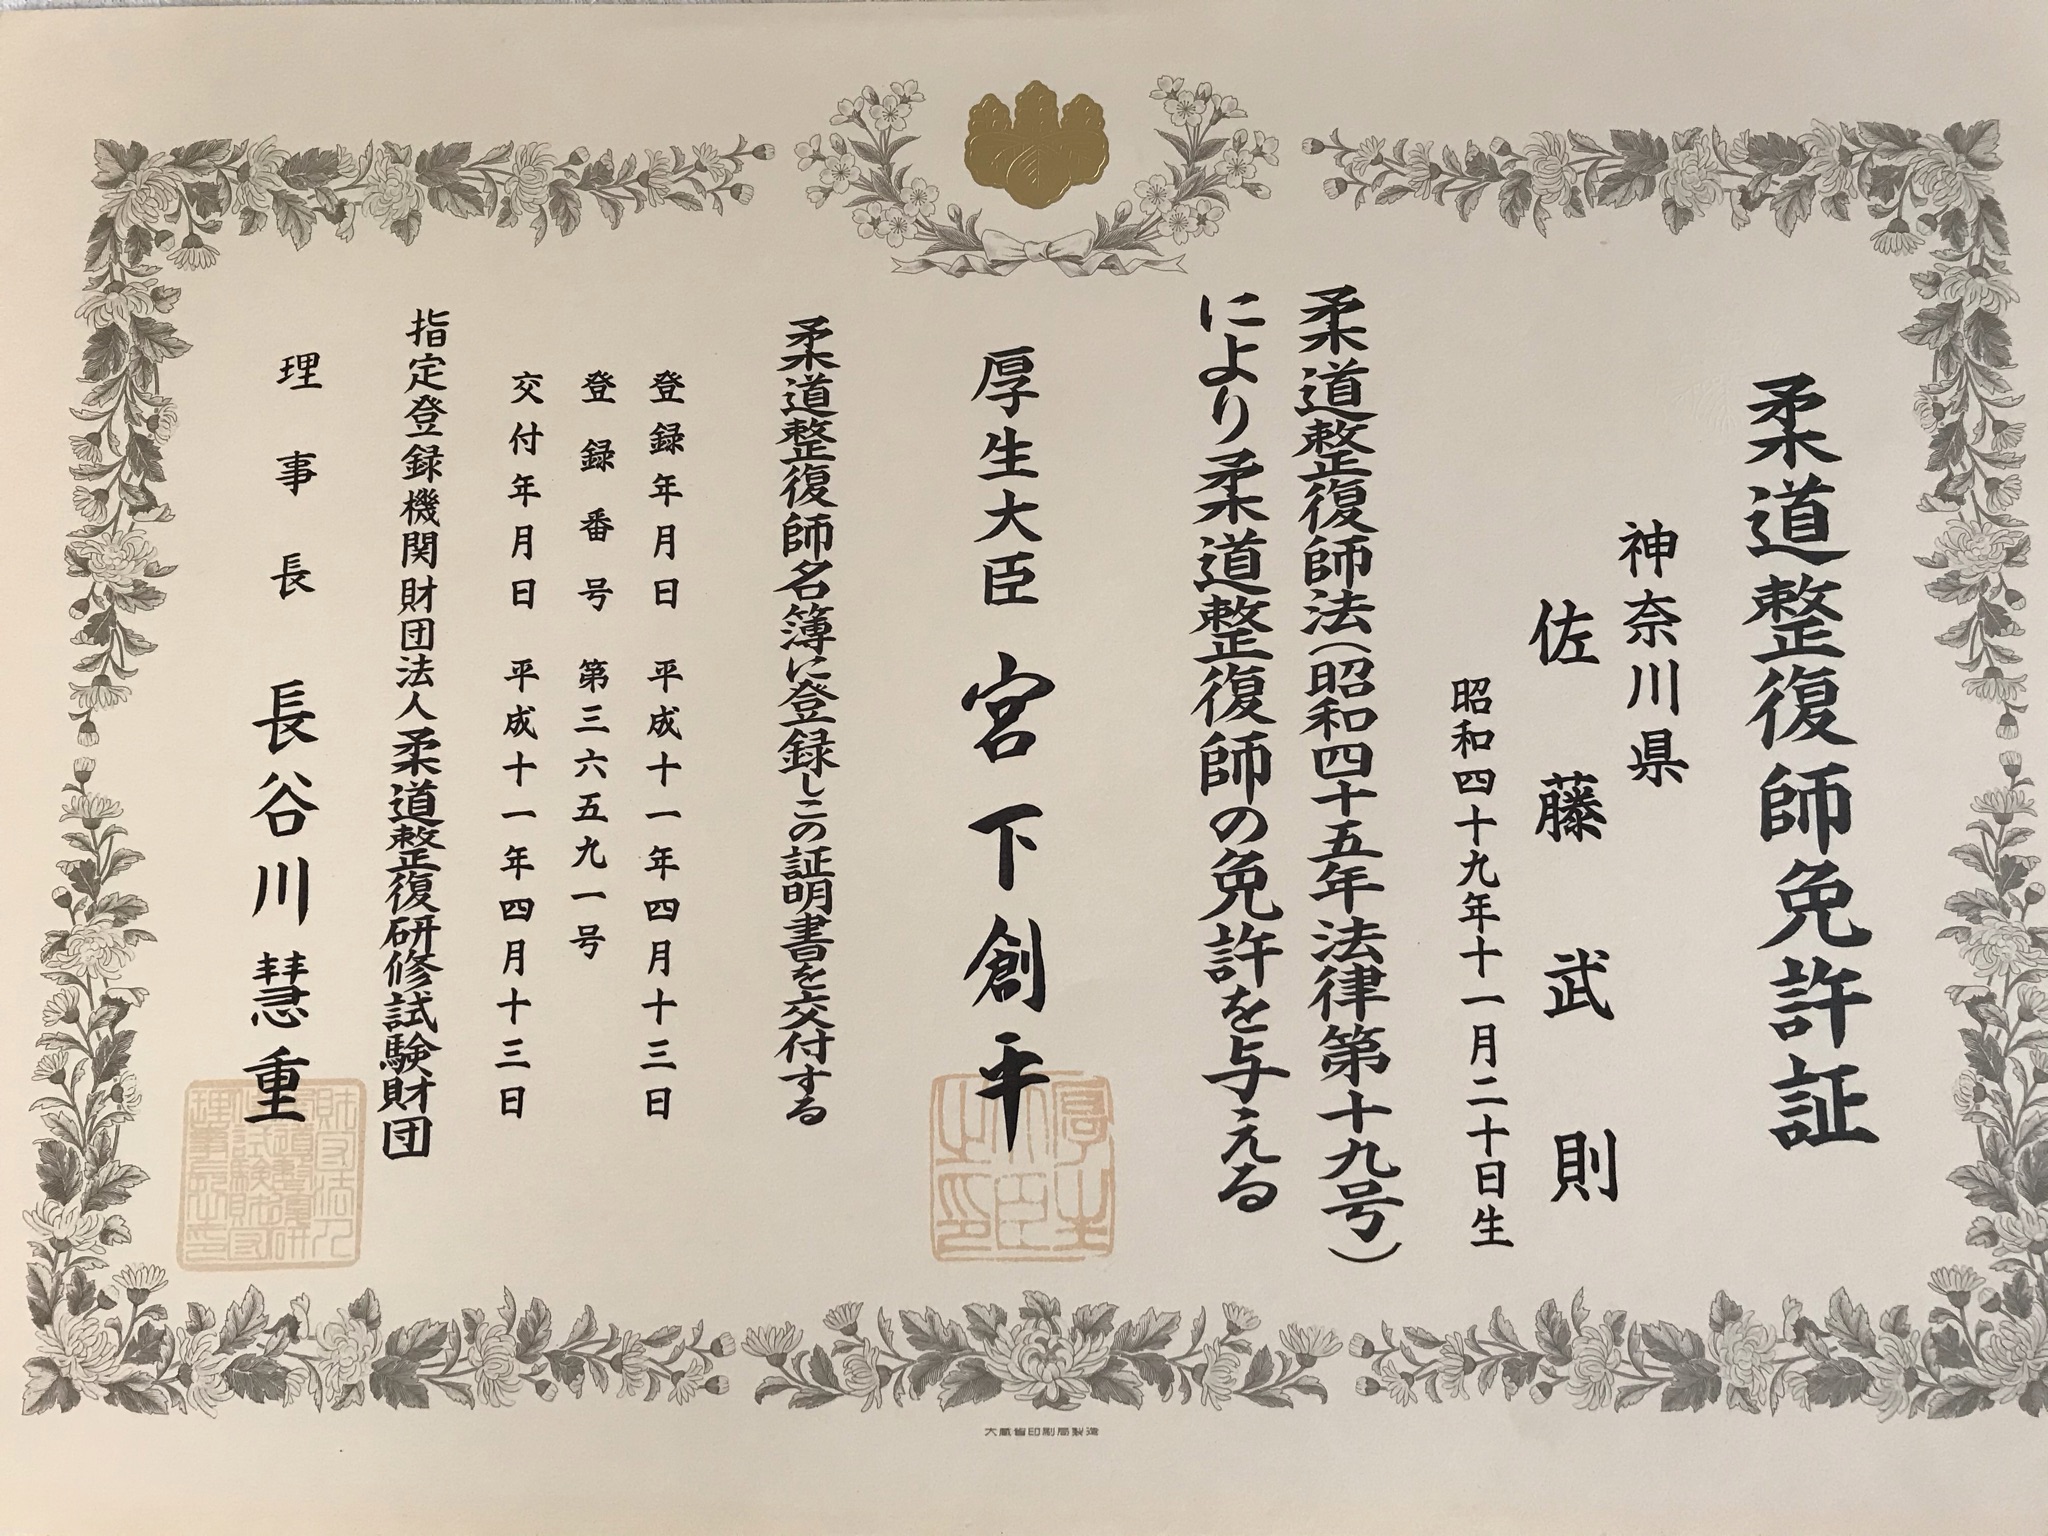 柔道整復師免許証
神奈川県
佐藤武則
昭和四十九年十一月二十日生
柔道整復師法(昭和四十五年法律第十九号)
により柔道整復師の免許を与える
厚生大臣 宮下創平
厚生大臣之印
柔道整復師名簿に登録しこの証明書を交付する
登録年月日 平成十一年四月十三日
登録番号 第三六五九一号
交付年月日 平成十一年四月十三日
指定登録機関財団法人柔道整復研修試験財団
理事長 長谷川慧重
大蔵省印刷局製造